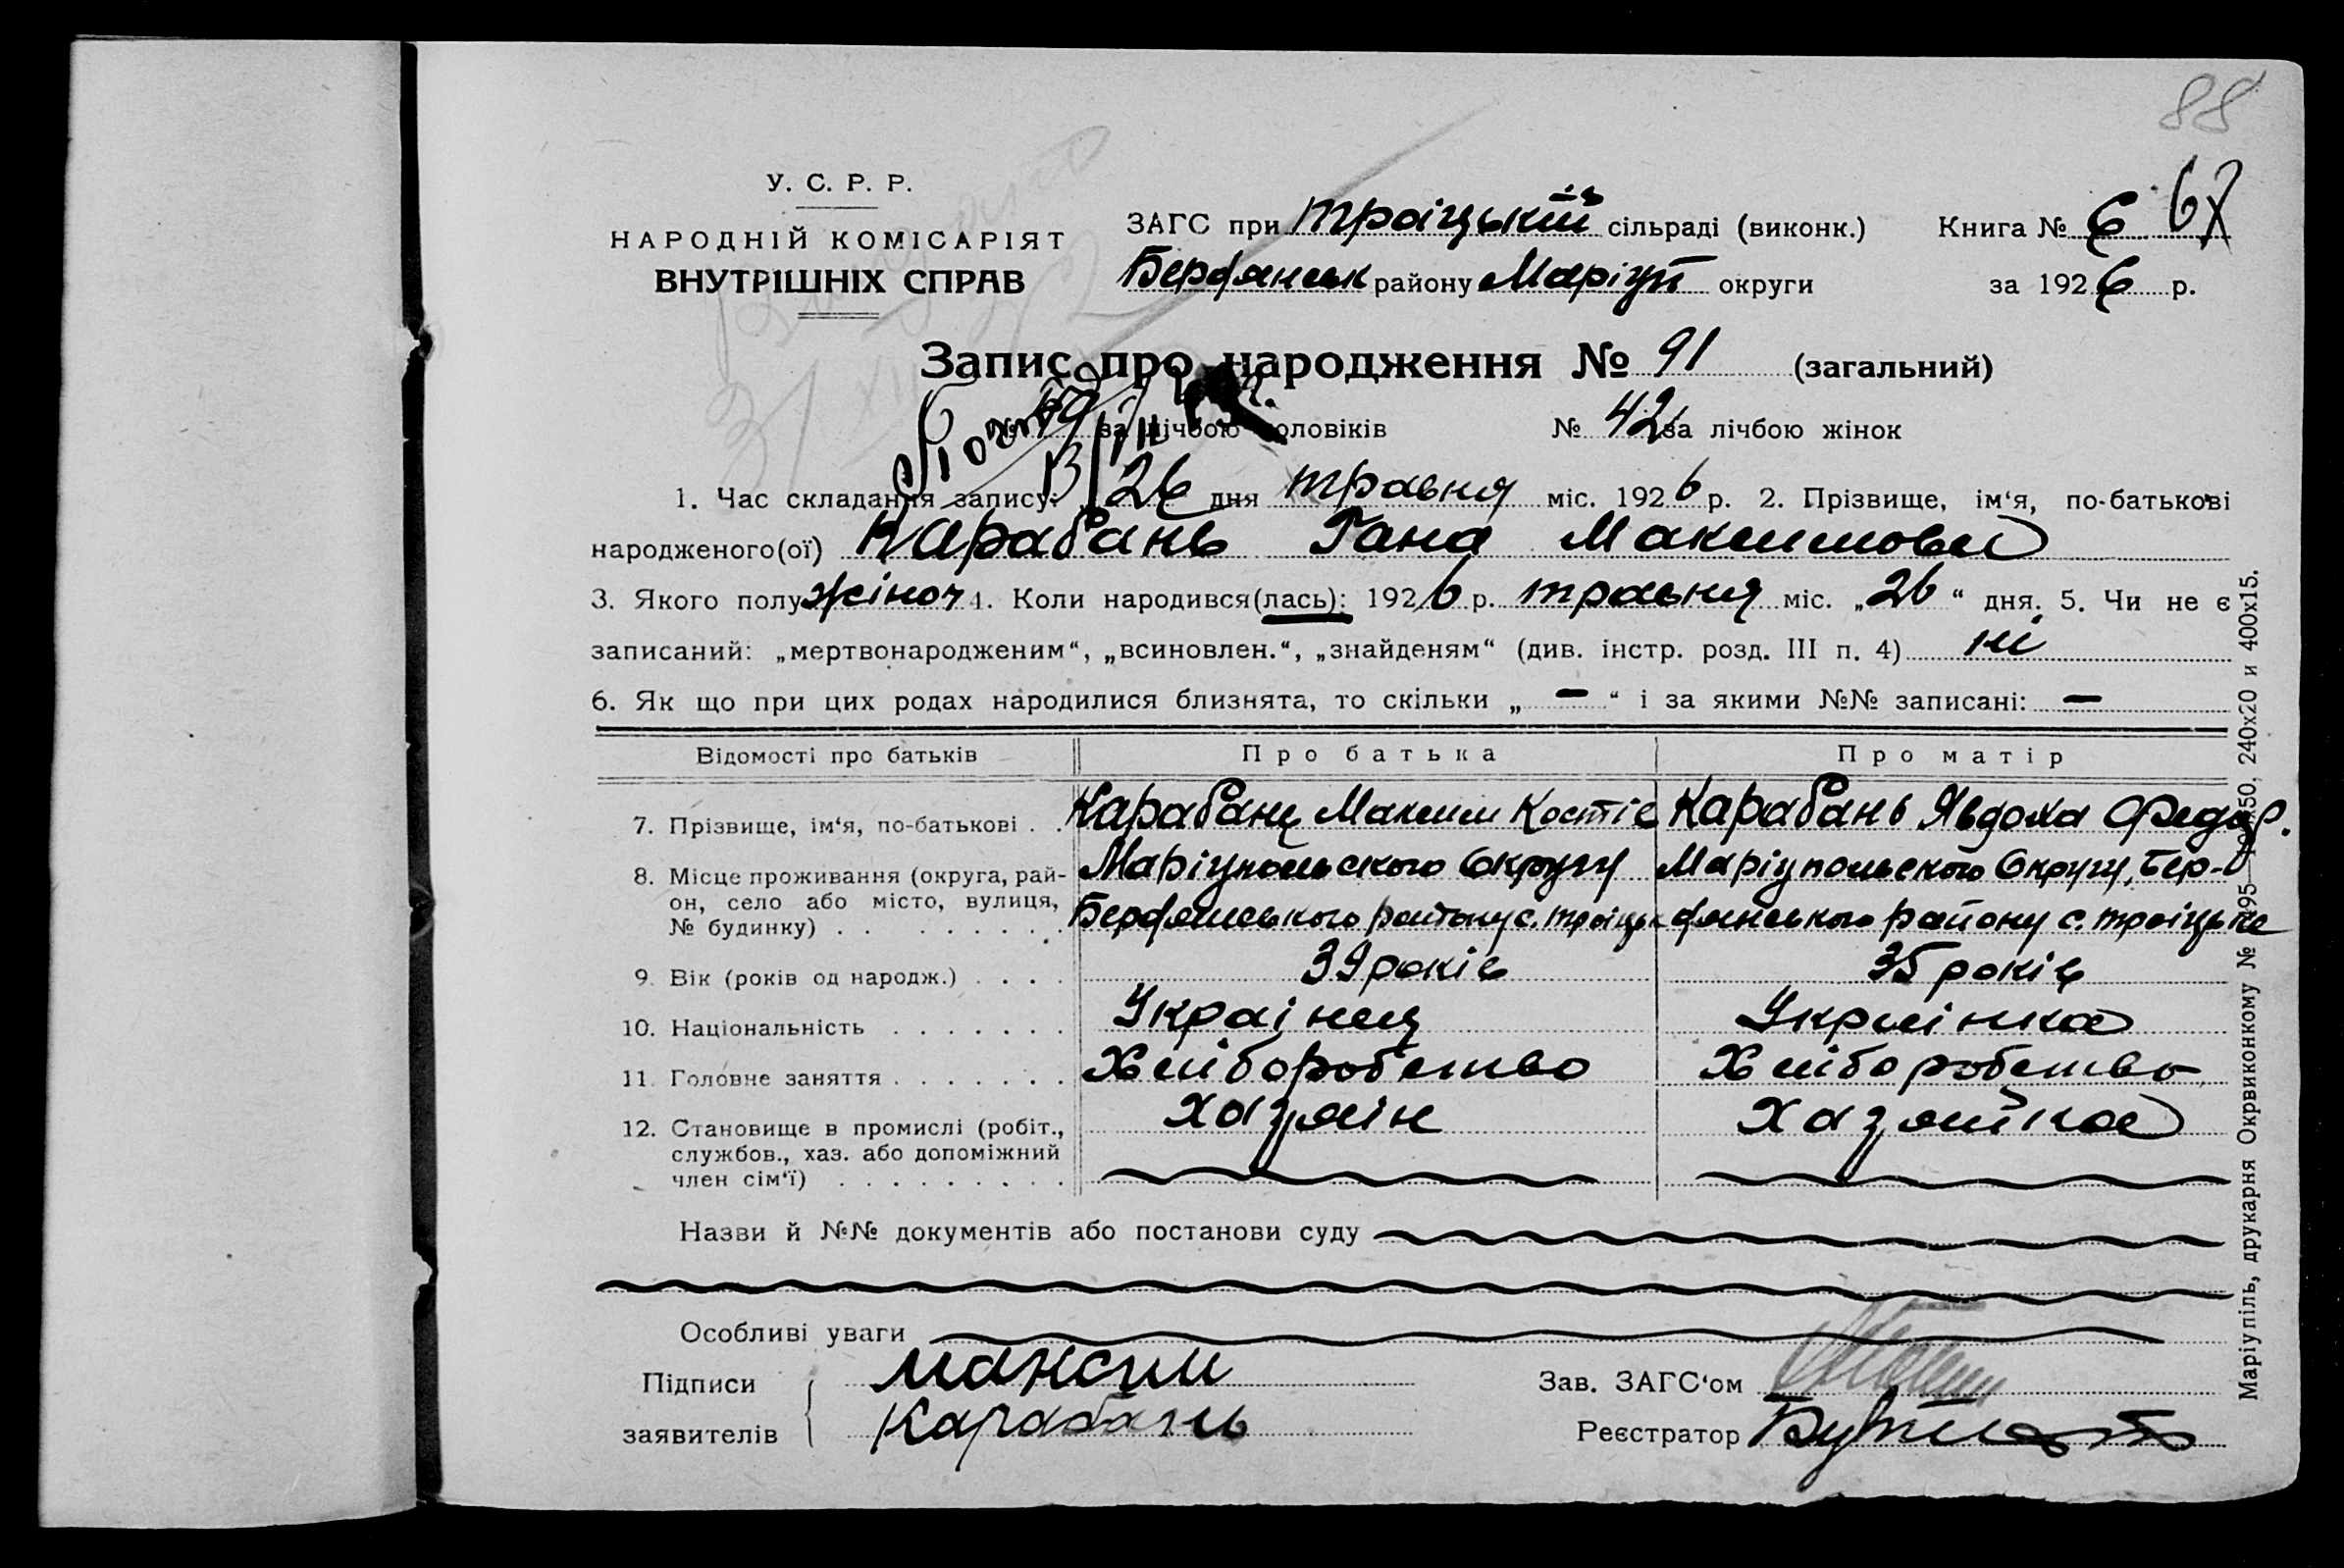 88
У. С. Р. Р.
НАРОДНІЙ КОМІСАРІЯТ
ВНУТРІШНІХ СПРАВ
ЗАГС при Троіцькій сільраді (виконк.) Книга № 6 67
Бердянськ району Маріуп округи за 1926 р.
Запис про народження № 91 (загальний)
за лічбою чоловіків № 42 за лічбою жінок
1. Час складання запису: 26 дня травня міс. 1926 р. 2. Прізвище, ім‘я, по-батькові
народженого(ої) Карабань Гана Максимовна
3. Якого полу жіноч 4. Коли народився(лась): 1926 р. травня міс. „26“ дня. 5. Чи не є
записаний: „мертвонародженим“, „всиновлен.“, „знайденям“ (див. інстр. розд. III п. 4) ні
6. Як що при цих родах народилися близнята, то скільки „ — “ і за якими №№ записані: —
Відомості про батьків Про батька Про матір
7. Прізвище, ім‘я, по-батькові . . Карабань Максим Костів Карабань Явдоха Федор.
8. Місце проживання (округа, рай- Маріупольского Округу Маріупольского Округу, Бер-
он, село або місто, вулиця,
№ будинку) Бердянського району с. Троіцьк дянського району с. Троіцьке
9. Вік (років од народж.) 39 років 35 років
10. Національність Украінец Украінка
11. Головне заняття Хліборобство Хліборобство
12. Становище в промислі (робіт., Хазяін Хазяйка
службов., хаз. або допоміжний
член сім‘ї)
Назви й №№ документів або постанови суду
Особливі уваги
Підписи Максим Зав. ЗАГС‘ом
заявителів Карабань Реєстратор
Маріупіль, друкарня Окрвиконкому № 240х20 и 400х15.